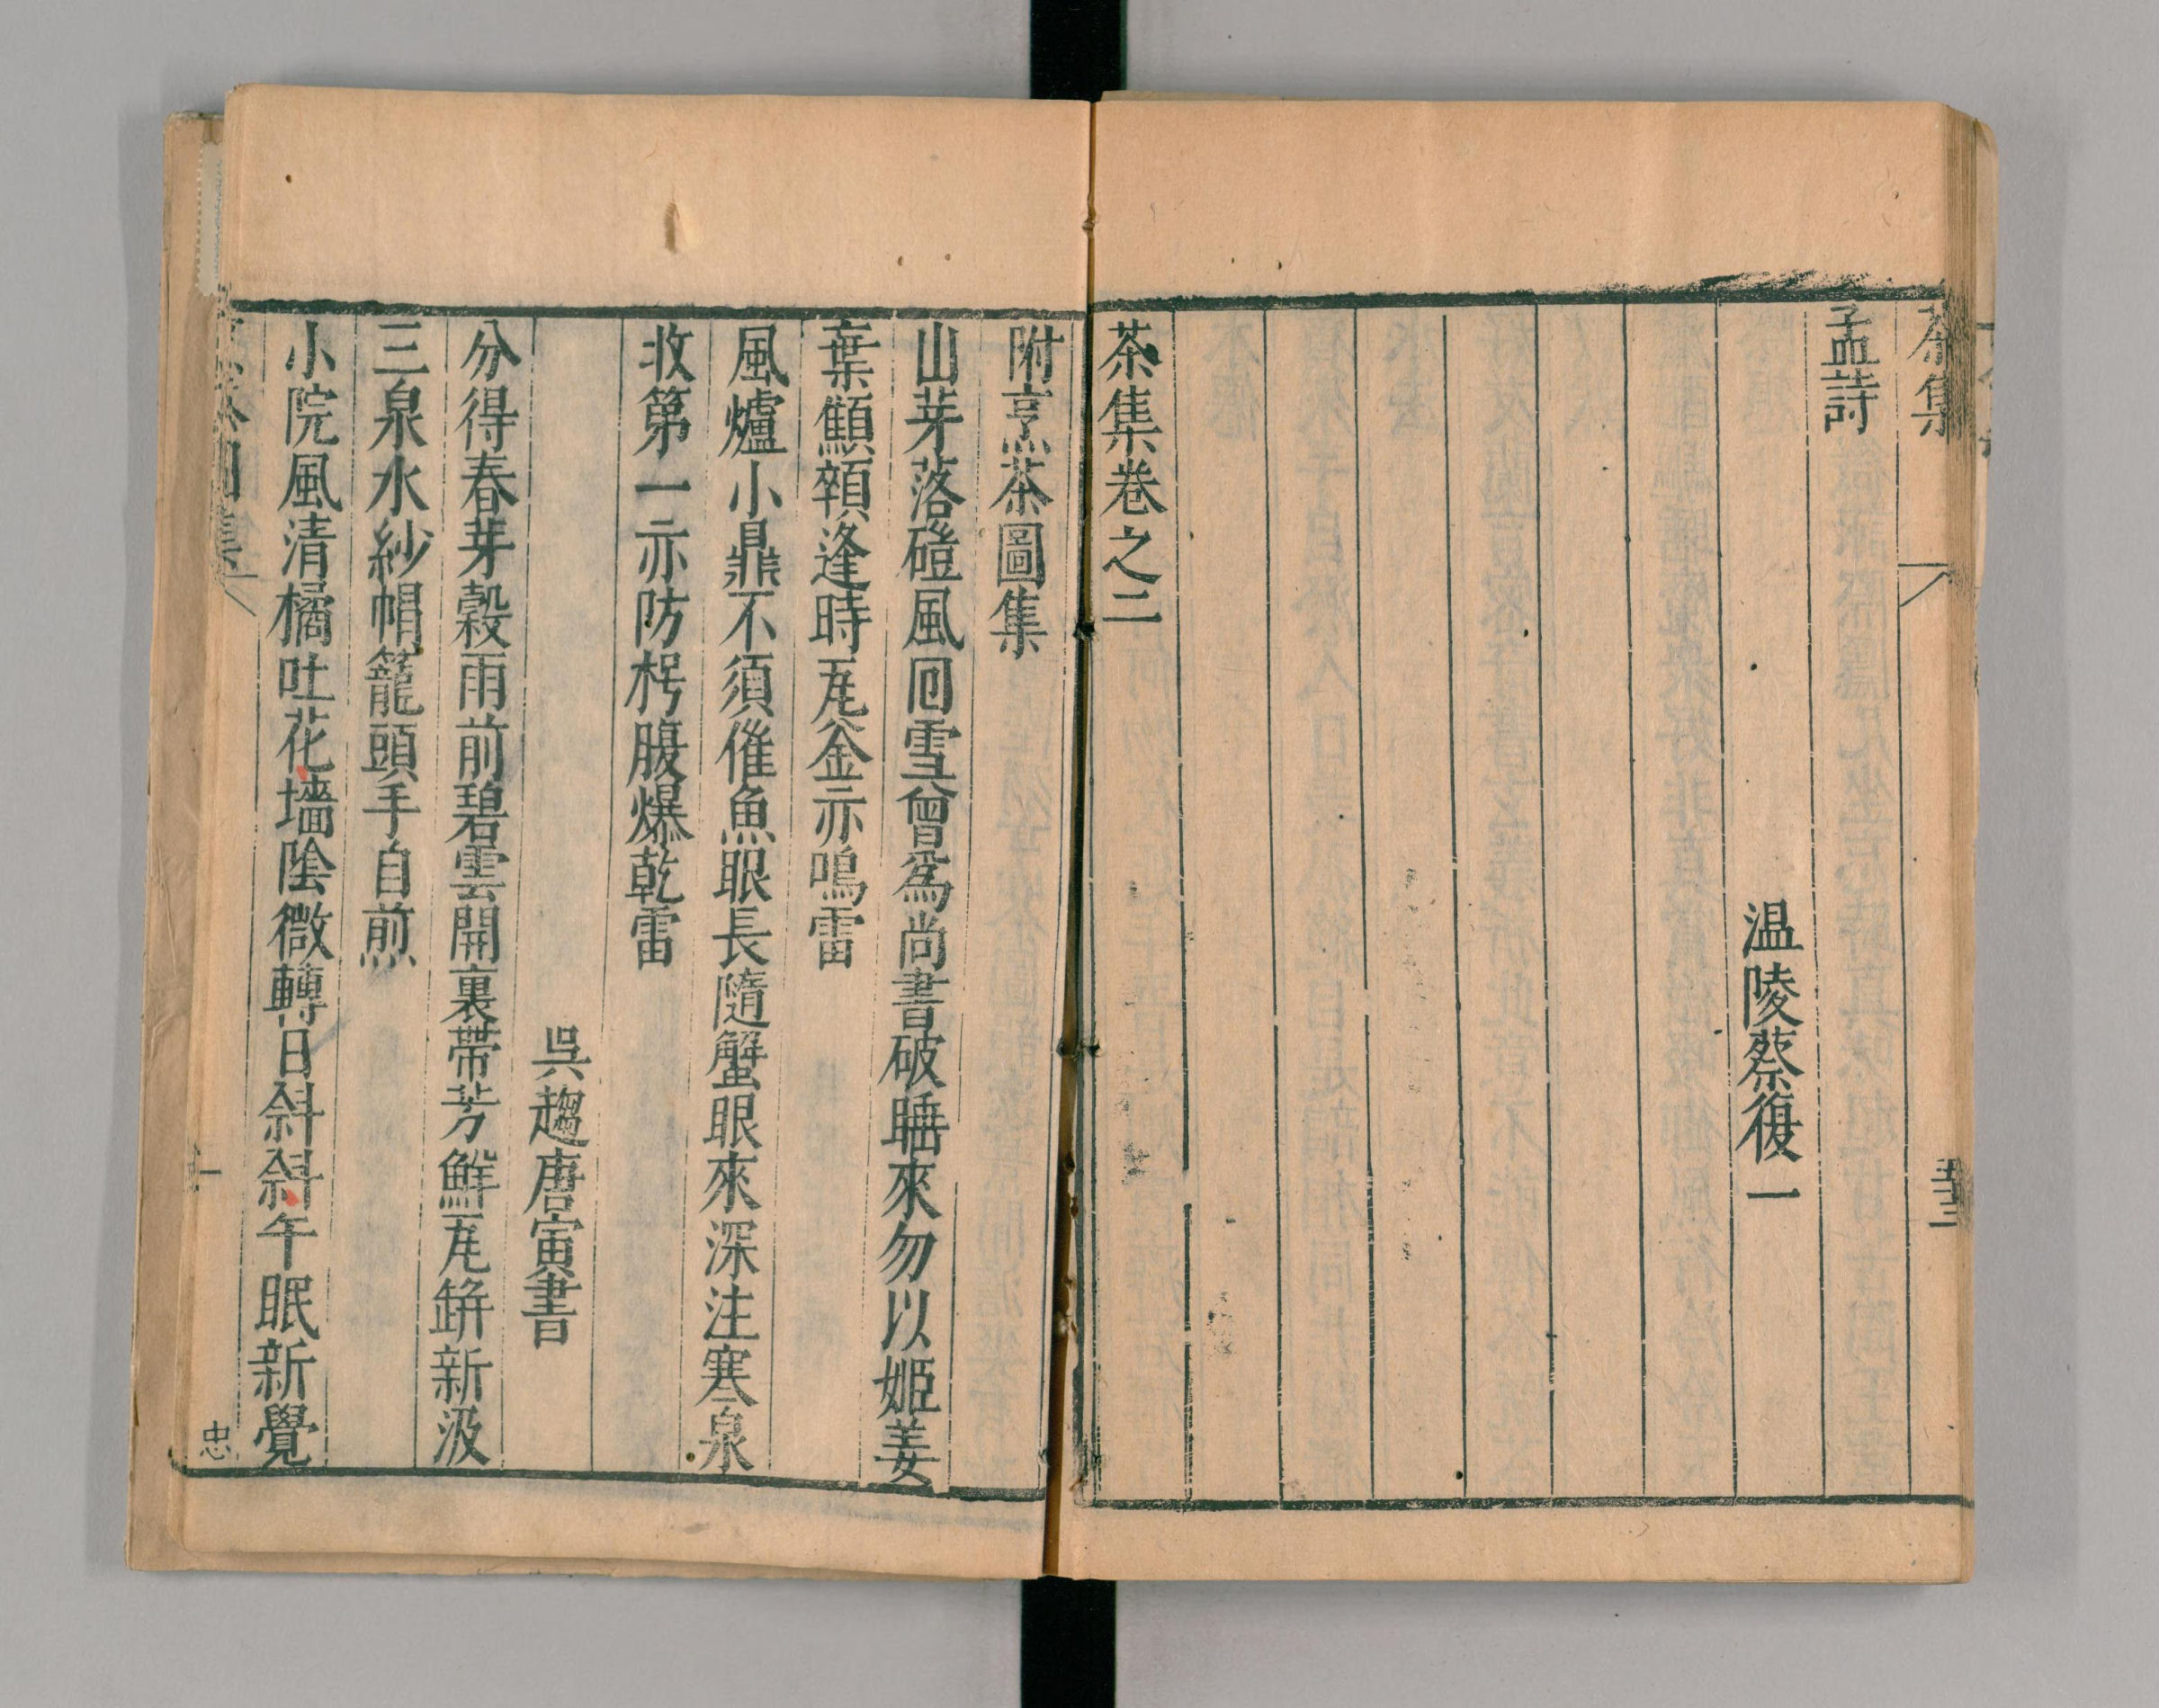 茶集
卅三
孟詩
温陵蔡復一
茶集卷之二
附烹茶圖集
山芽落磑風囘雪曾爲尚書破睡來勿以姬姜
棄顦顇逢時瓦釜亦鳴雷
風爐小鼎不須催魚眼長隨蟹眼來深注寒泉
收第一亦防枵腹爆乾雷
吳趨唐寅書
分得春芽穀雨前碧雲開裏帶芳鮮瓦缾新汲
三泉水紗帽籠頭手自煎
小院風清橘吐花墻陰微轉日斜斜午眠新覺
忠